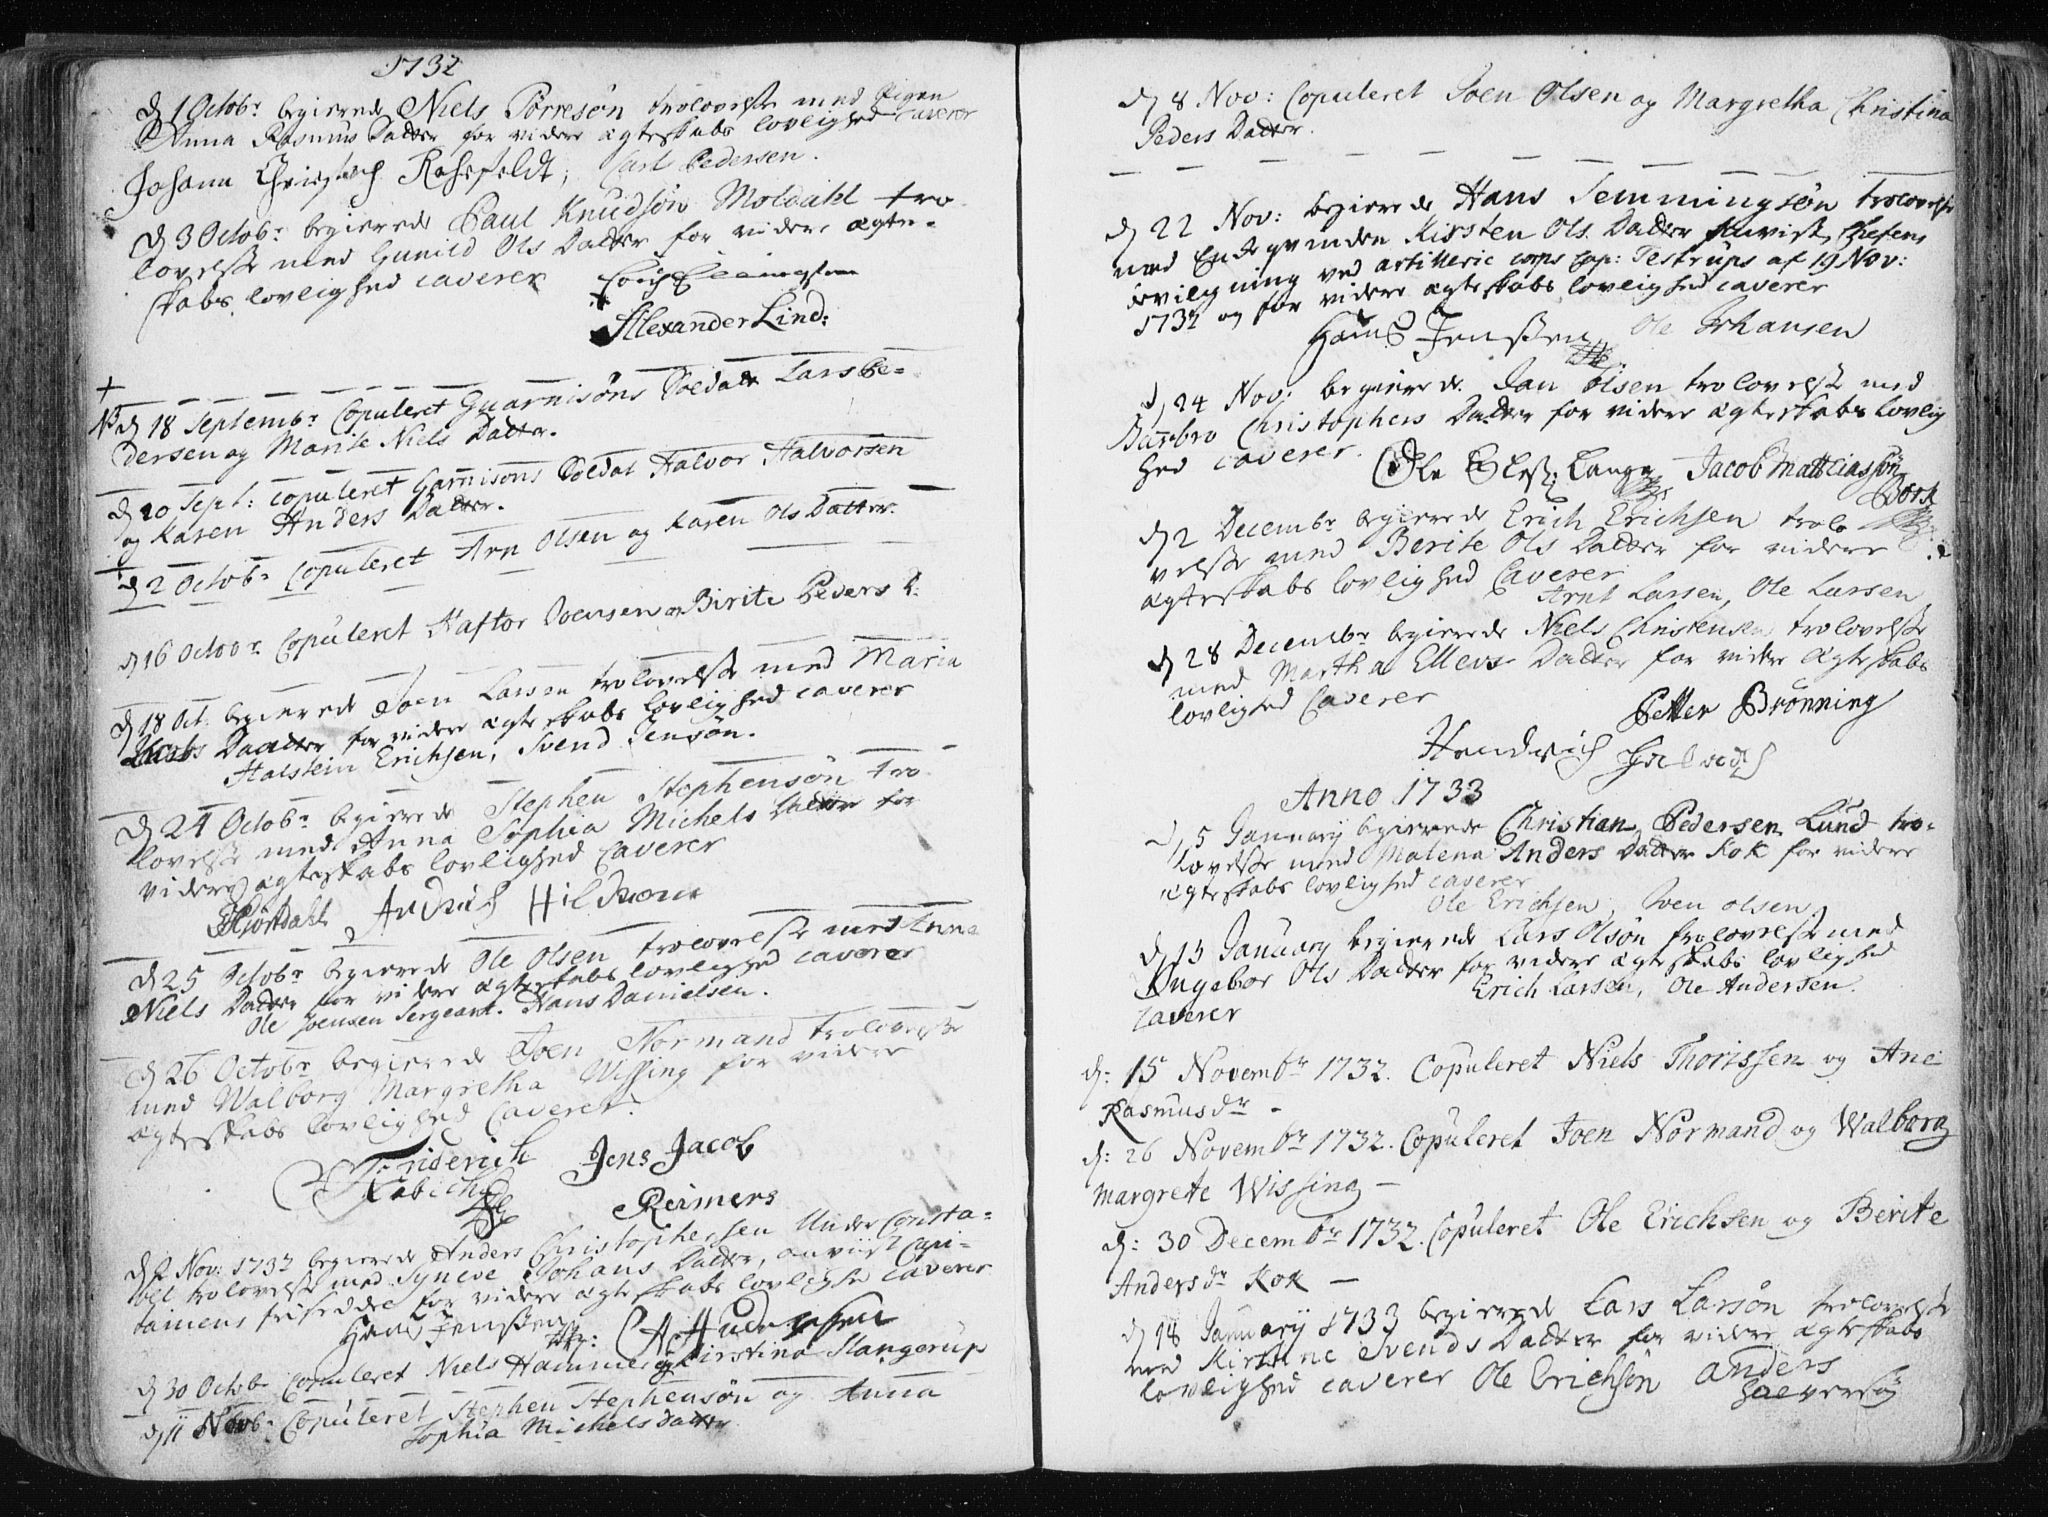 1732
d 1 Octobr begierede Niels Pörresön trolovelse med Pigen
Anna Rasmus Datter for videre ægteskabs lovlighed caverer
Johann Christoph Rosefeldt, Carl Pedersen.
d 3 Octobr begierede Paul Knudsön Moldahl tro
lovelse med Gunild Ols Datter for videre ægte-
skabs lovlighed caverer
Alexander Lind:
+
NB d 18 Septembr Copuleret Guarnisöns Soldat Lars Pe-
dersen og Marite Niels Datter.
d 20 Sept: copuleret Garnisons Soldat Halvor Halvorsen
og Karen Anders Datter.
d 2 Octobr Copuleret Arn Olsen og Karen Ols Datter.
d 16 Octobr Copuleret Haftor Joensen og Birite Peders D:
d 18 Oct: begierede Joen Larsen trolovelse med Maria
Datter for videre ægteskabs lovlighed caverer
Halstein Erichsen, Svend Jensön.
d 24 Octobr begierede Stephen Stephensön tro
lovelse med Anna Sophia Michels Datter for
videre ægteskabs lovlighed Caverer
Hiortdahl
d 25 Octobr begierede Ole Olsen trolovelse med Anna
Niels Datter for videre ægteskabs lovlighed caverer
Ole Joensen Sergeant. Hans Danielsen.
d 26 Octobr begierede Joen Normand trolovelse
med Walborg Margretha Wissing for videre
ægteskabs lovlighed Caverer.
Friderich Jens Jacob
Kabich Reimers
d 2 Nov: 1732 begierede Anders Christophersen Under Consta-
bel trolovelse med Syneve Johans Datter, anviist Capi-
tainens friseddel for videre ægteskabs lovlighed caverer
Hans Jenssen
d 30 Octobr Copuleret Niels Hammer og Kirstina Slangerup
d 11 Novb: Copuleret Stephen Stephensön og Anna
Sophia Michels Datter
d 8 Nov: Copuleret Joen Olsen og Margretha Christina
Peders Datter.
d 22 Nov: begierede Hans Temmingsön trolovelse
med Kirsten Ols Datter Chefens
bevilgning ved artillerie corps Cap: Testrups af 19 Nov:
1732 og for videre ægteskabs lovlighed caverer
Hans Jenssen Ole Johansen
d 24 Nov: begierede Jan Olsen trolovelse med
Christophers Datter for videre ægteskabs lovlig
hed caverer.
Lange, Jacob Mattiassön
Börk
d 2 Decembr begierede Erich Erichsen trolo
velse med Berite Ols Datter for videre
ægteskabs lovlighed Caverer
Arnt Larsen, Ole Larsen
d 28 Decembr begierede Niels Christensen trolovelse
med Martha Ellevs Datter for videre ægteskabs
lovlighed Caverer
Petter Brönning
Hendrich
Anno 1733
d 5 January begierede Christian Pedersen Lund tro-
lovelse med Malena Anders Datter Kok for videre
ægteskabs lovlighed caverer
Ole Erichsen, Joen olsen.
d 13 January begierede Lars Olsön trolovelse med
Ingebor Ols Datter for videre ægteskabs lovlighed
Erich Larsen, Ole Andersen.
caverer
d: 15 Novembr 1732. Copuleret Niels Thorissen og Ane
Rasmusdr -
d: 26 Novembr 1732. Copuleret Joen Normand og Walborg
Margrete Wissing -
d: 30 Decembr 1732. Copuleret Ole Erichsen og Berite
Andersdr Kok -
d 18 January 1733 begierede Lars Larsön trolovelse
med Kirstine Svends Datter for videre ægteskabs
lovlighed caverer Ole Erichsön Anders
Halversön